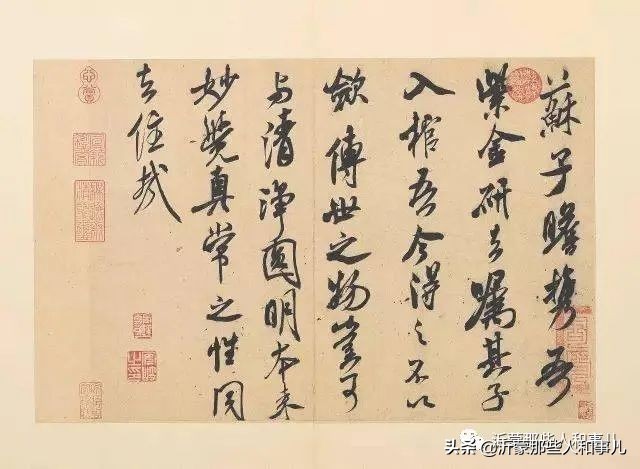 蘇子瞻攜吾
紫金研去囑其子
入棺吾今得之不以
斂傳世之物豈可
與清淨圓明本來
妙覺真常之性同
去住哉
沂蒙那些人和事儿
头条 @沂蒙那些人和事儿